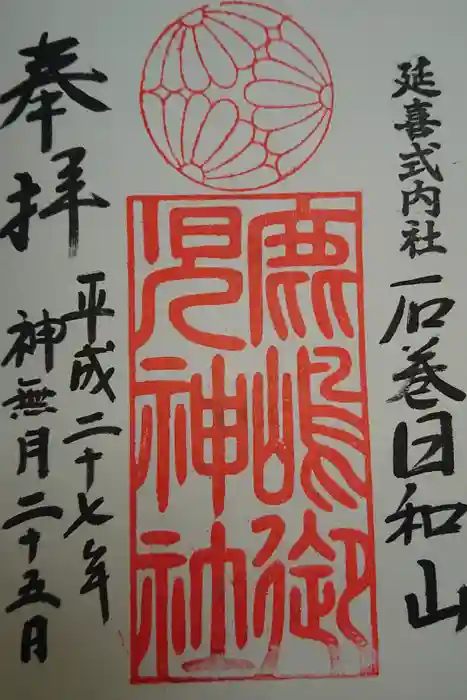 延喜式内社 石巻日和山
鹿嶋御
児神社
奉拝
平成二十七年
神無月二十五月